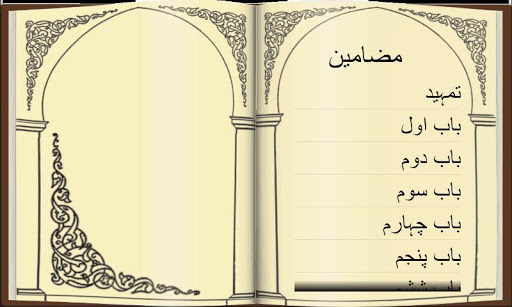 مضامین
تمہید
باب اول
باب دوم
باب سوم
باب چہارم
باب پنجم
باب ششم